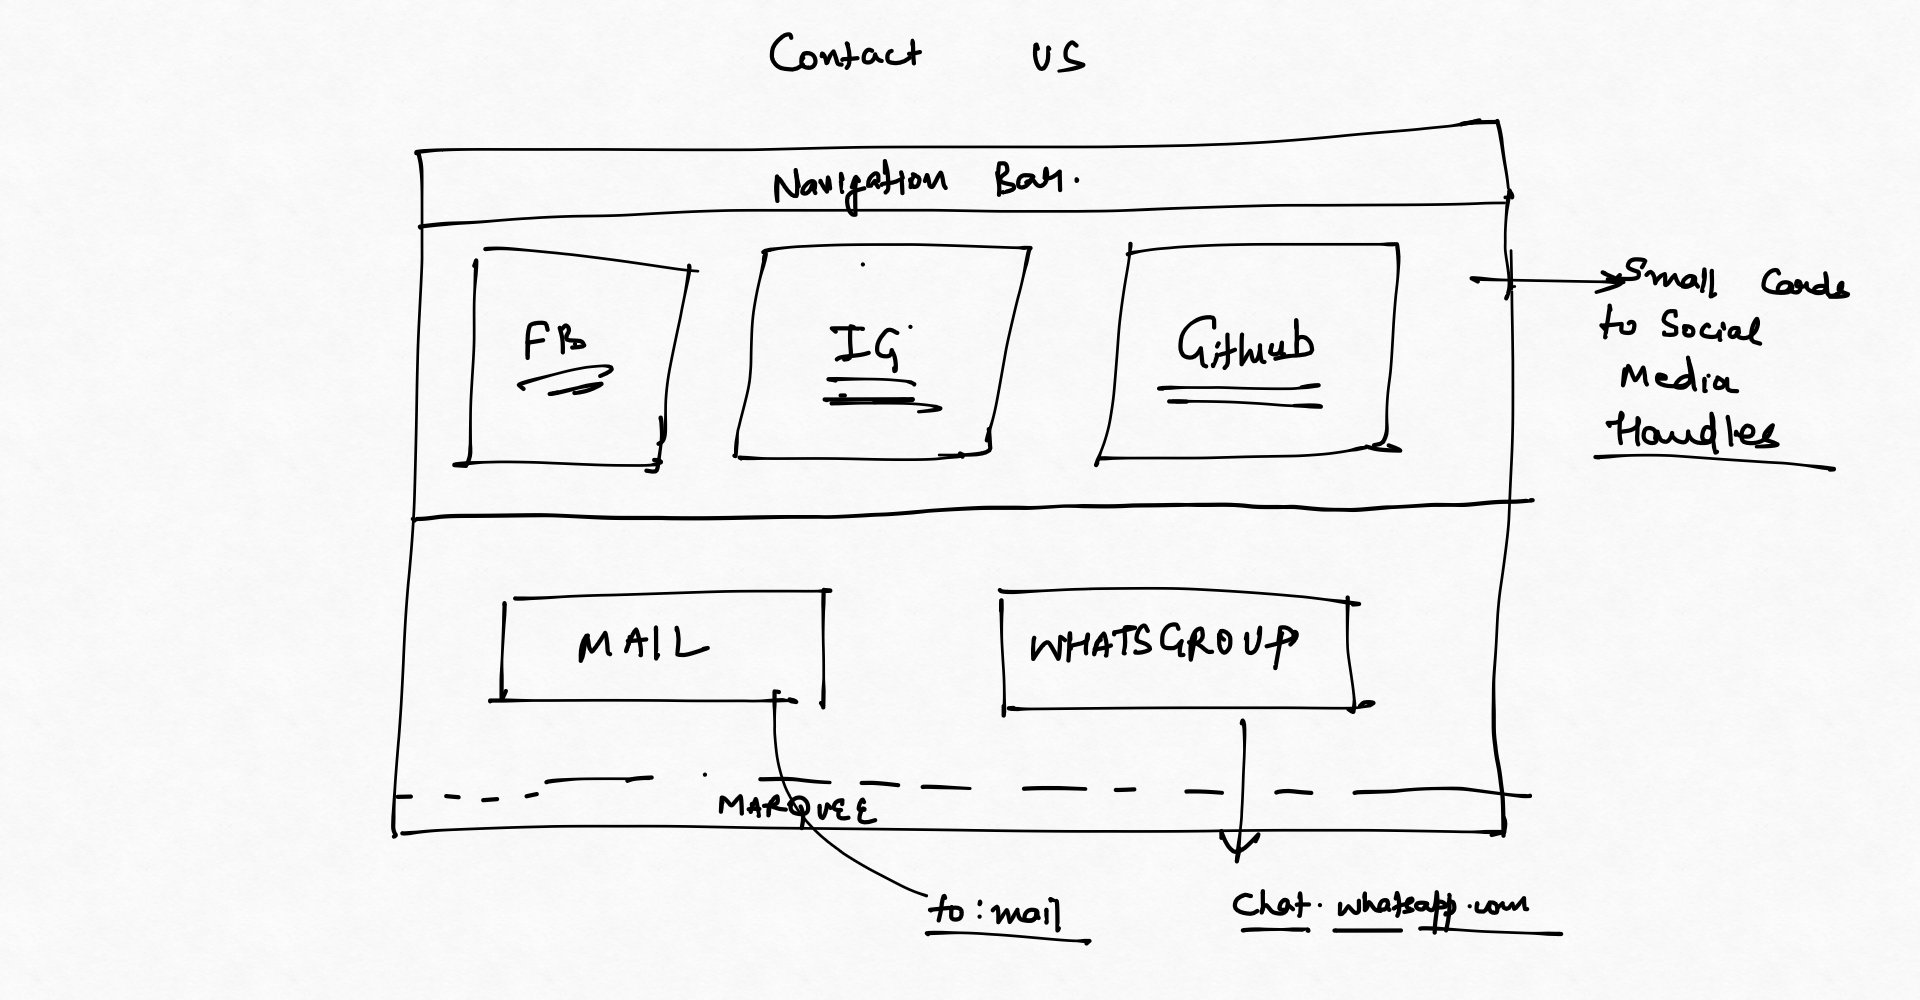 Contact us
Navigation Bar.
FB
IG
Github
Small Cards
to Social
Media
Handles
MAIL
WHATSGROUP
MARQUEE
to:mail
Chat.whatsapp.com